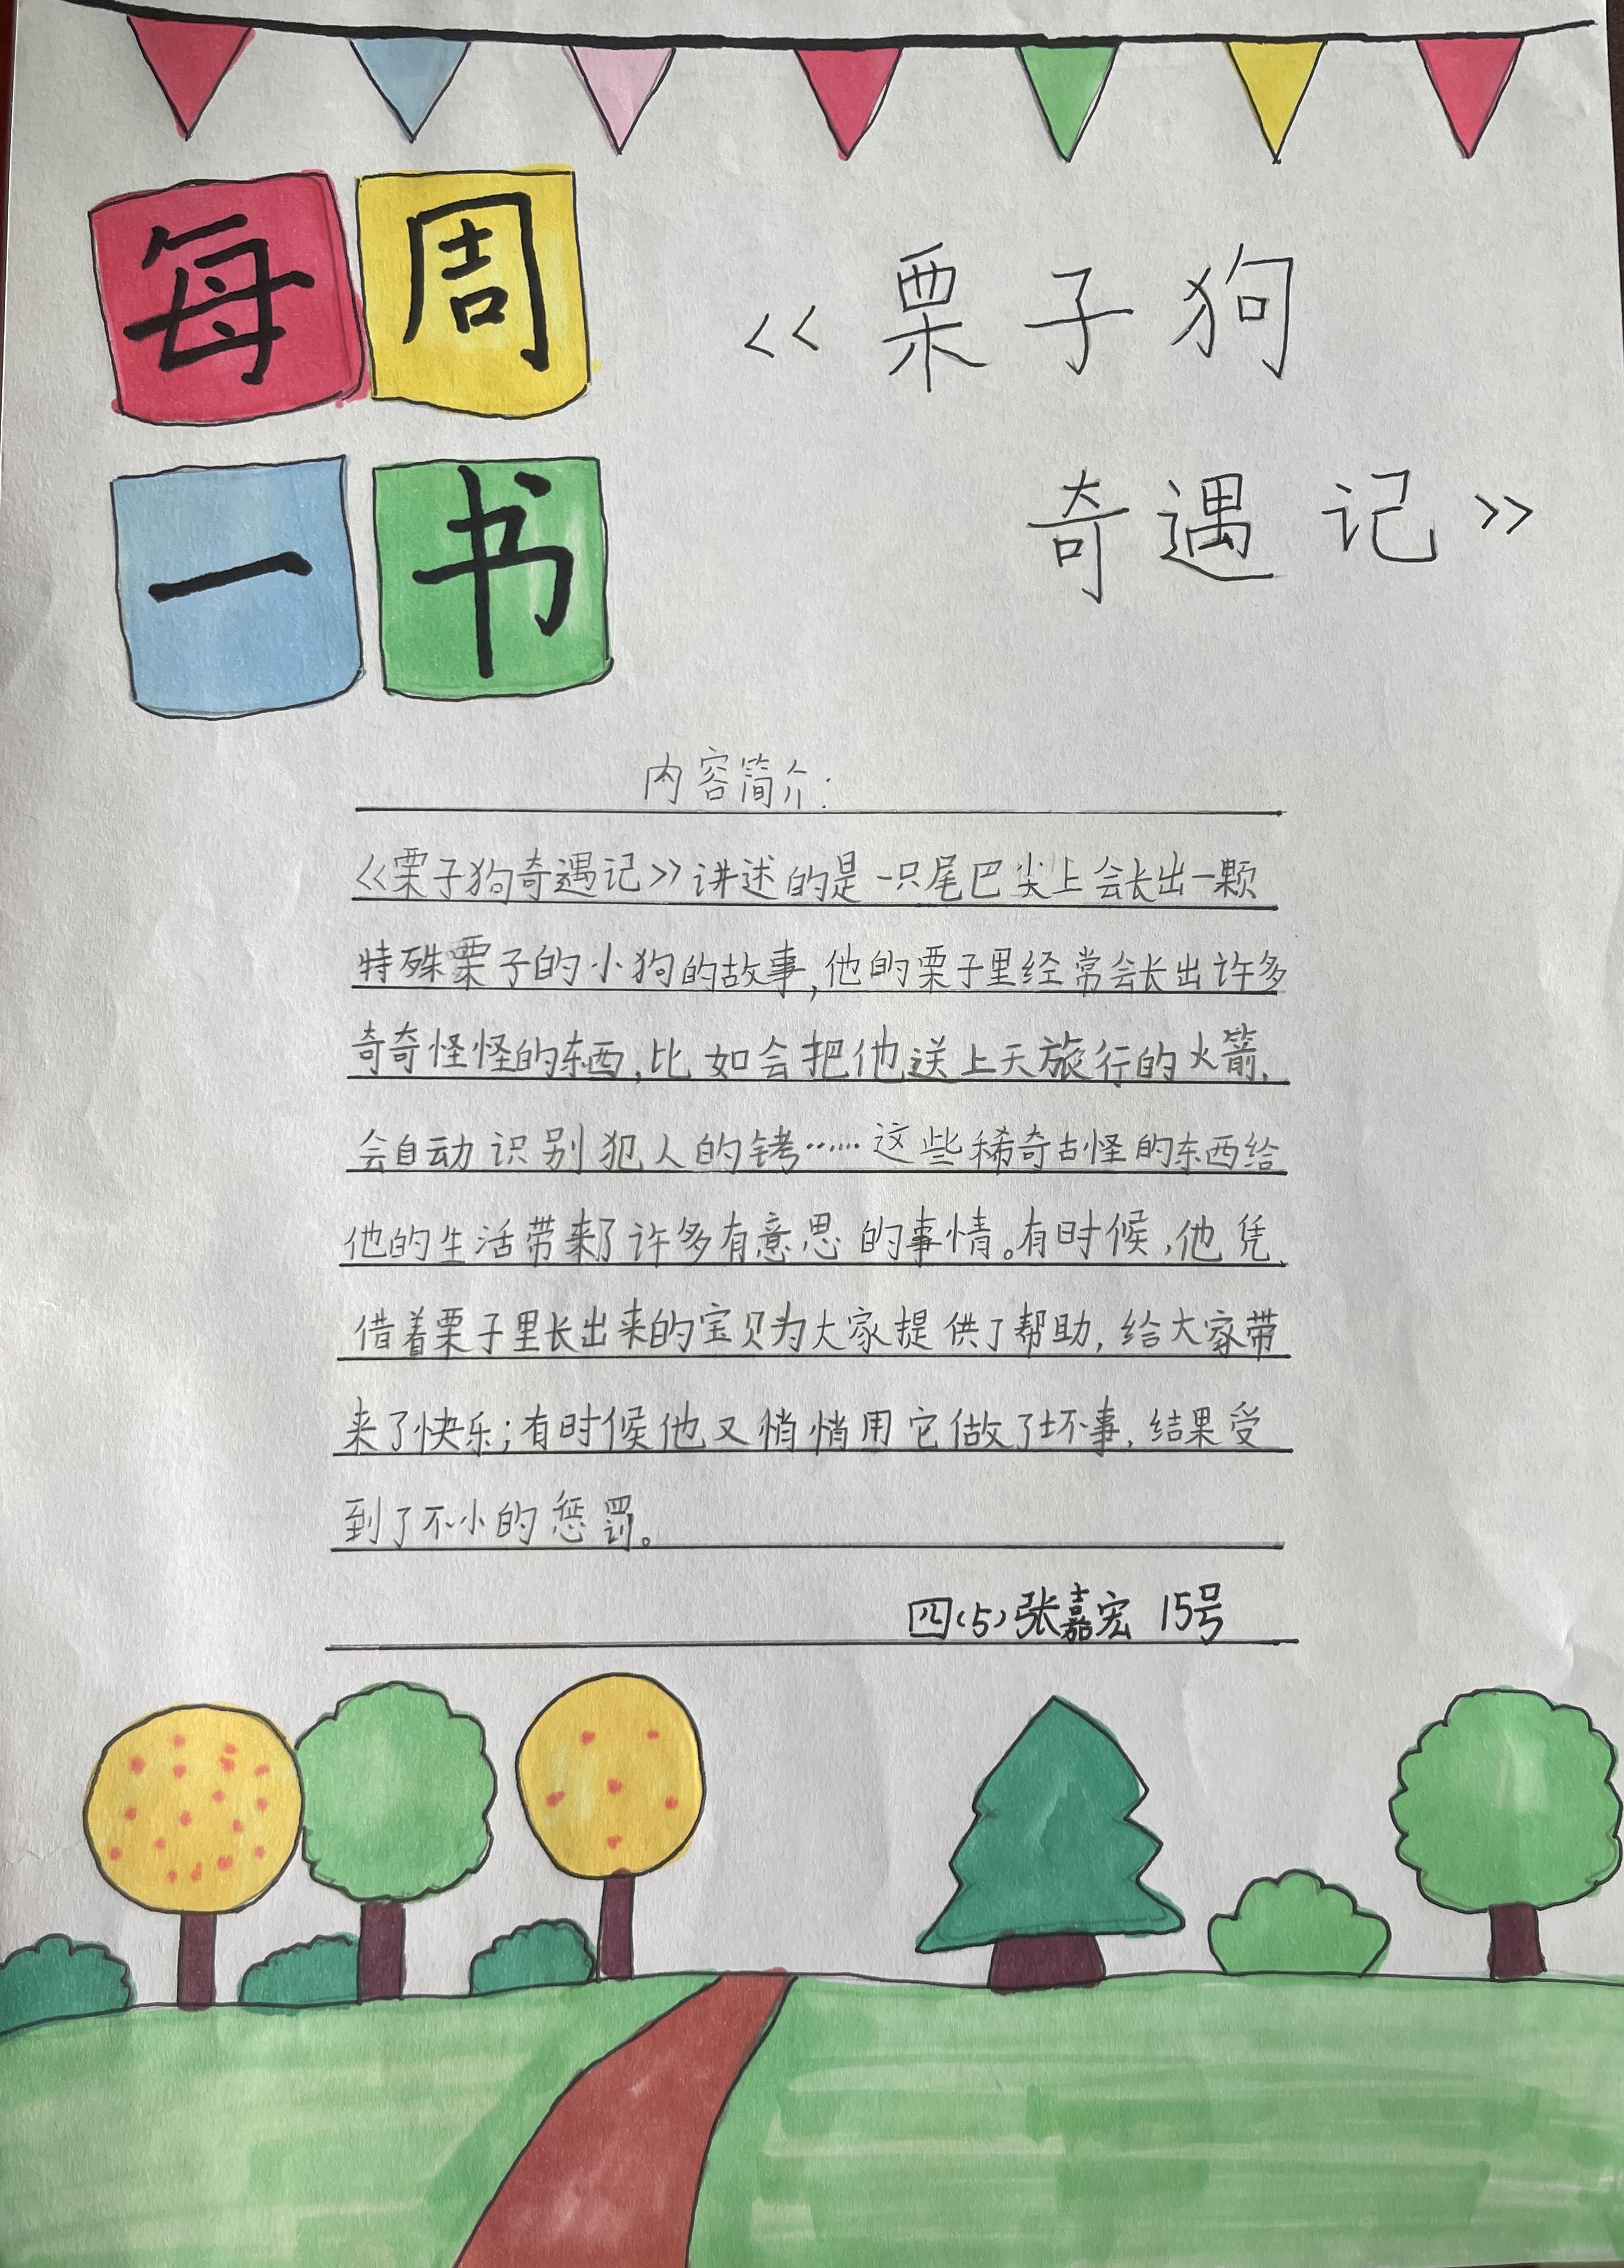 每周
一书
《栗子狗
奇遇记》
内容简介:
《栗子狗奇遇记》讲述的是一只尾巴尖上会长出一颗
特殊栗子的小狗的故事,他的栗子里经常会长出许多
奇奇怪怪的东西,比如会把他送上天旅行的火箭、
会自动识别犯人的铐……这些稀奇古怪的东西给
他的生活带来了许多有意思的事情。有时候,他凭
借着栗子里长出来的宝贝为大家提供了帮助,给大家带
来了快乐;有时候他又悄悄用它做了坏事,结果受
到了不小的惩罚。
四(5)张嘉宏 15号